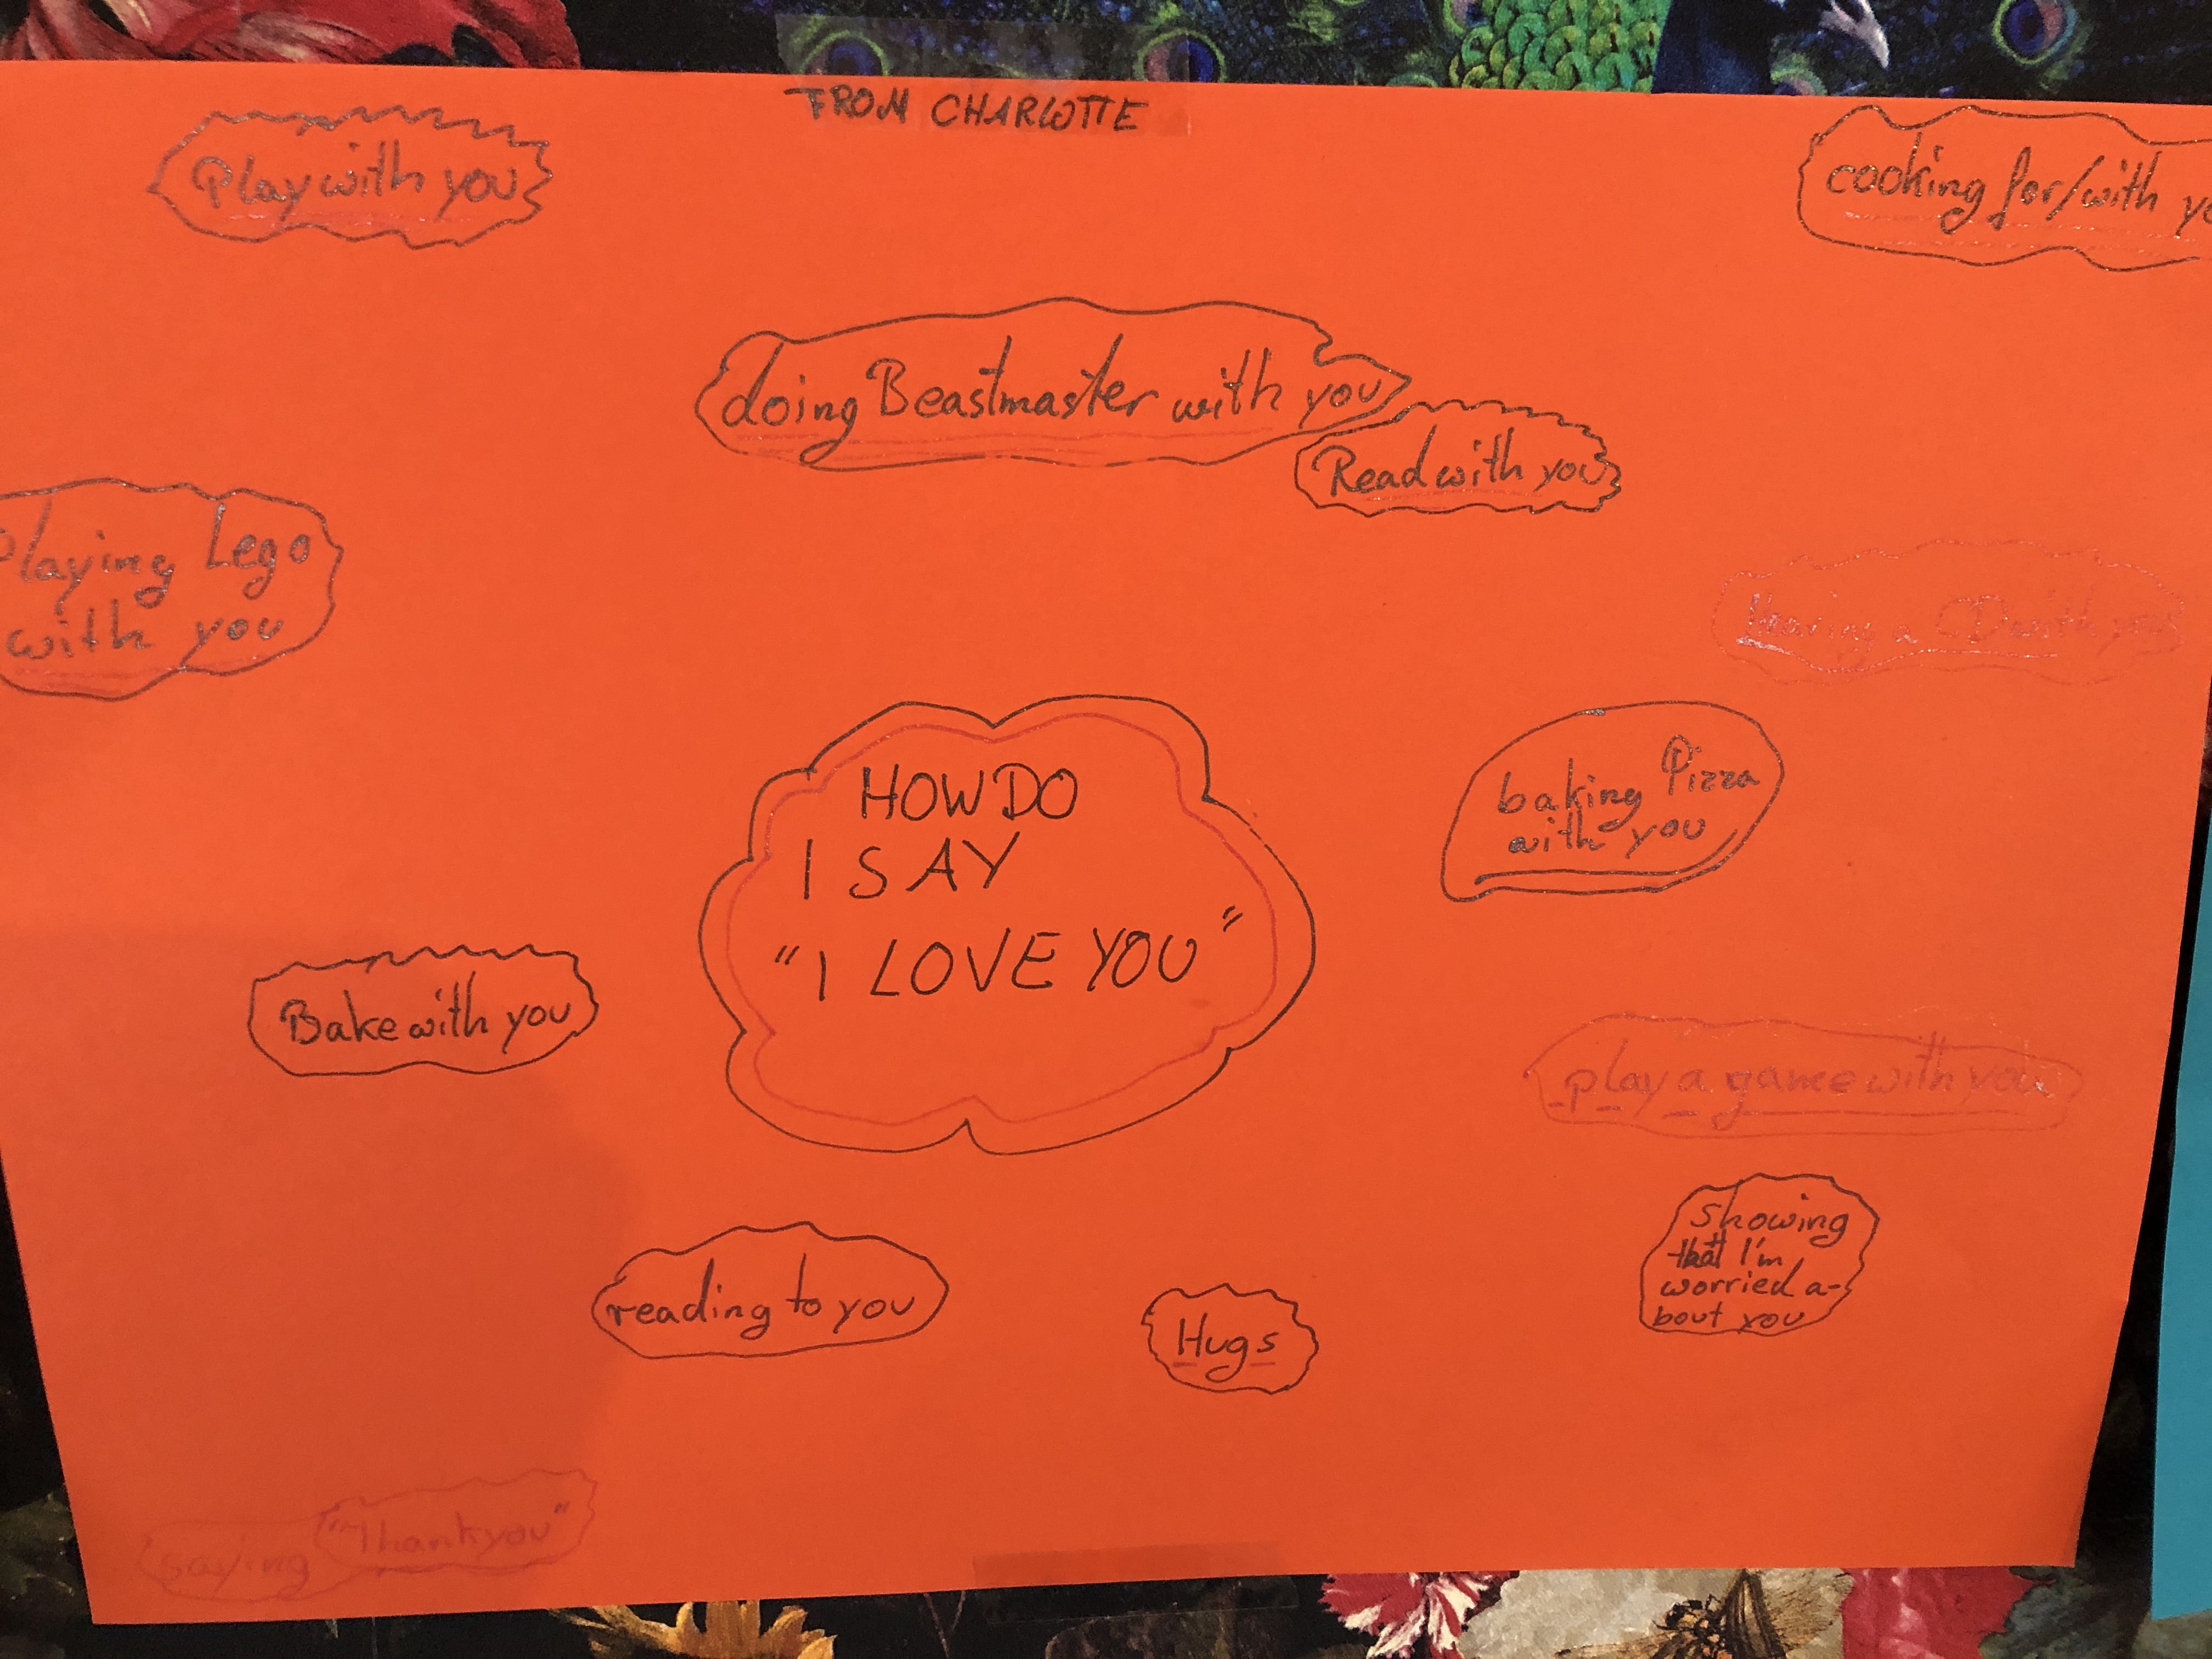 FROM CHARLOTTE
Play with you
cooking for/with
doing Beastmaster with you
Read with you
playing Lego
with you
Hearing a CD with you
HOW DO
I SAY
"I LOVE YOU"
baking Pizza
with you
Bake with you
play a game with you
showing
that I'm
worried a-
bout you
reading to you
Hugs
saying "Thank you"